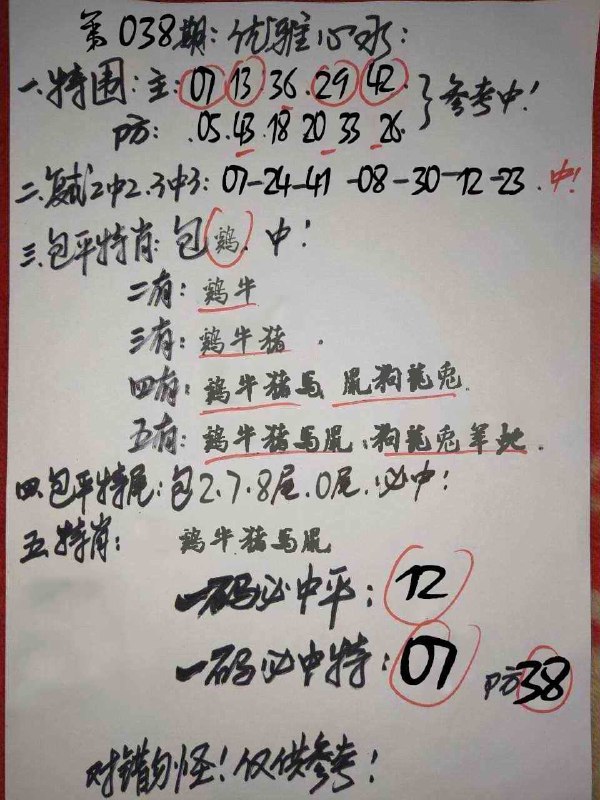 第038期:优雅心水:
一.特围:主:07 13 36.29 42.}参考中!
P方: .05.43.18 20 33 26.
二.复试2中2.3中3: 07-24-41-08-30-12-23.中!
三.包平特肖:包鸡.中!
二有:鸡牛
三有:鸡牛猪.
四有:鸡牛猪马 鼠狗龍兔.
五有:鸡牛猪馬鼠、狗龍兔羊蛇.
四.包平特尾:包2.7.8尾.0尾.必中!
五.特肖: 鸡牛.猪馬鼠
一码必中平:12
一码必中特:07 P方38
对错勿怪!仅供参考!